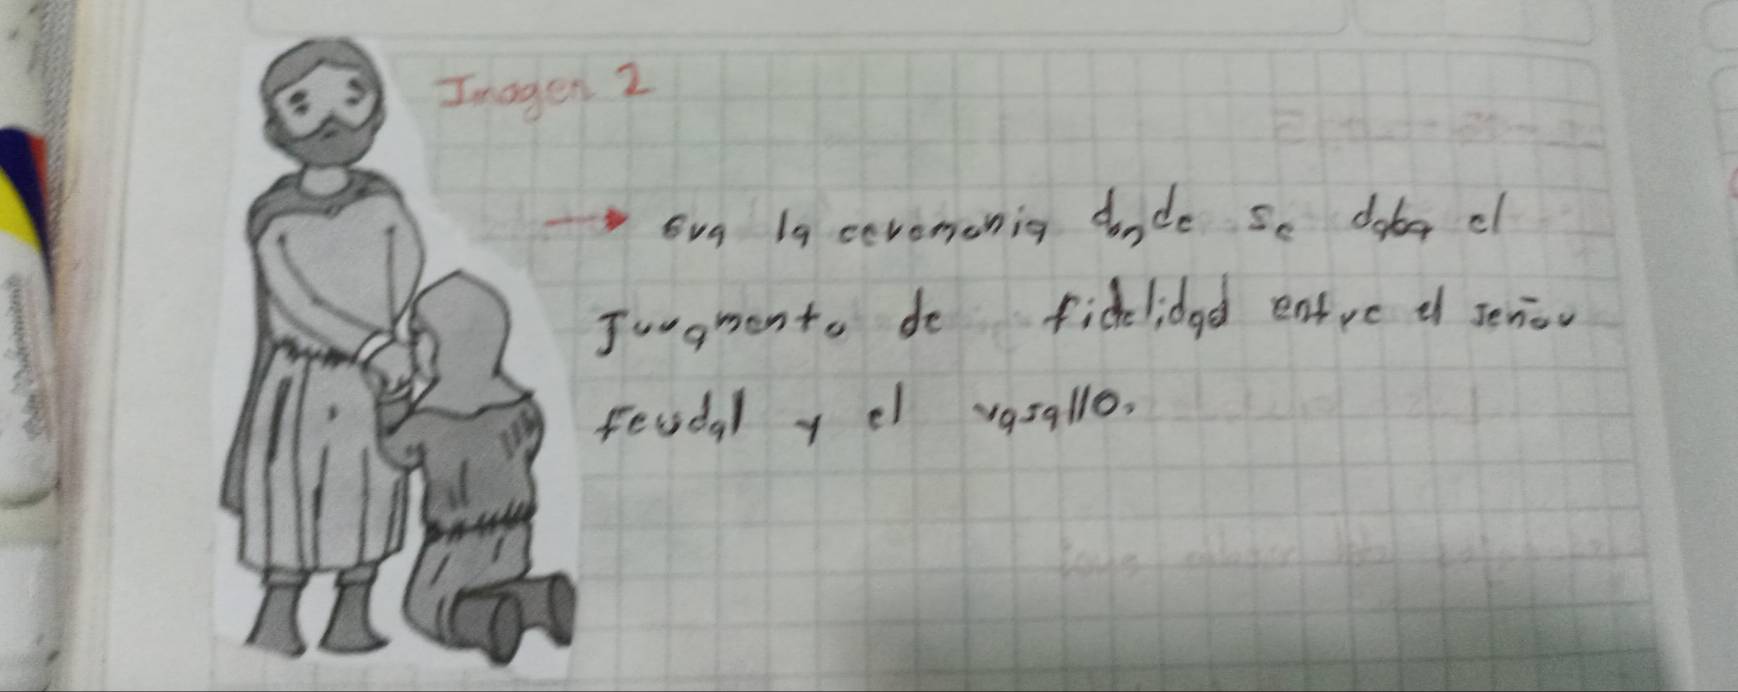 Imagen 2
→ Era la ceremonia donde se daba el
Juramento de fidelidad entre el señor
feudal y el vasallo.